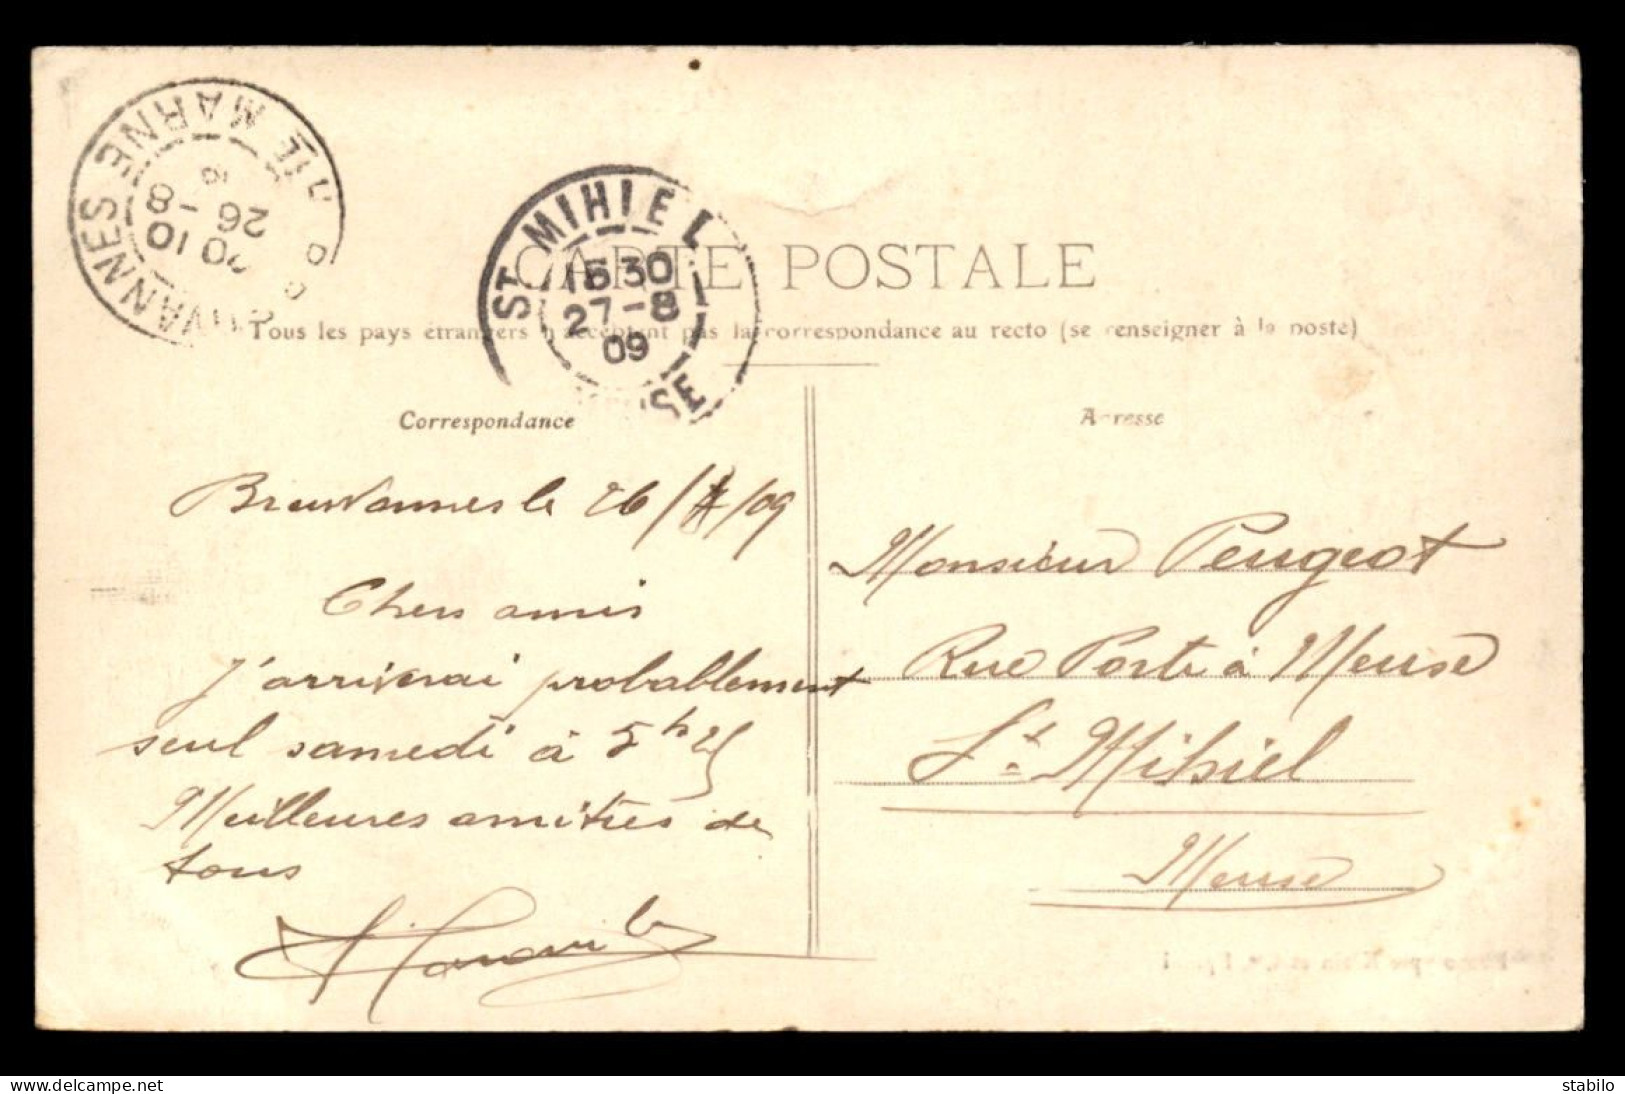 HTE MARNE
VANNES
20 10
26 -8
ST MIHIEL
15 30
27-8
09
CARTE POSTALE
Tous les pays étrangers n'acceptent pas la correspondance au recto (se renseigner à la poste)
Correspondance
Breuvannes le 26/8/09
Chers amis
J'arriverai probablement
seul samedi à 5h 25
Meilleures amitiés de
tous
Adresse
Monsieur Peugeot
Rue Porte à Meuse
St Mihiel
Meuse
delcampe.net
stabilo